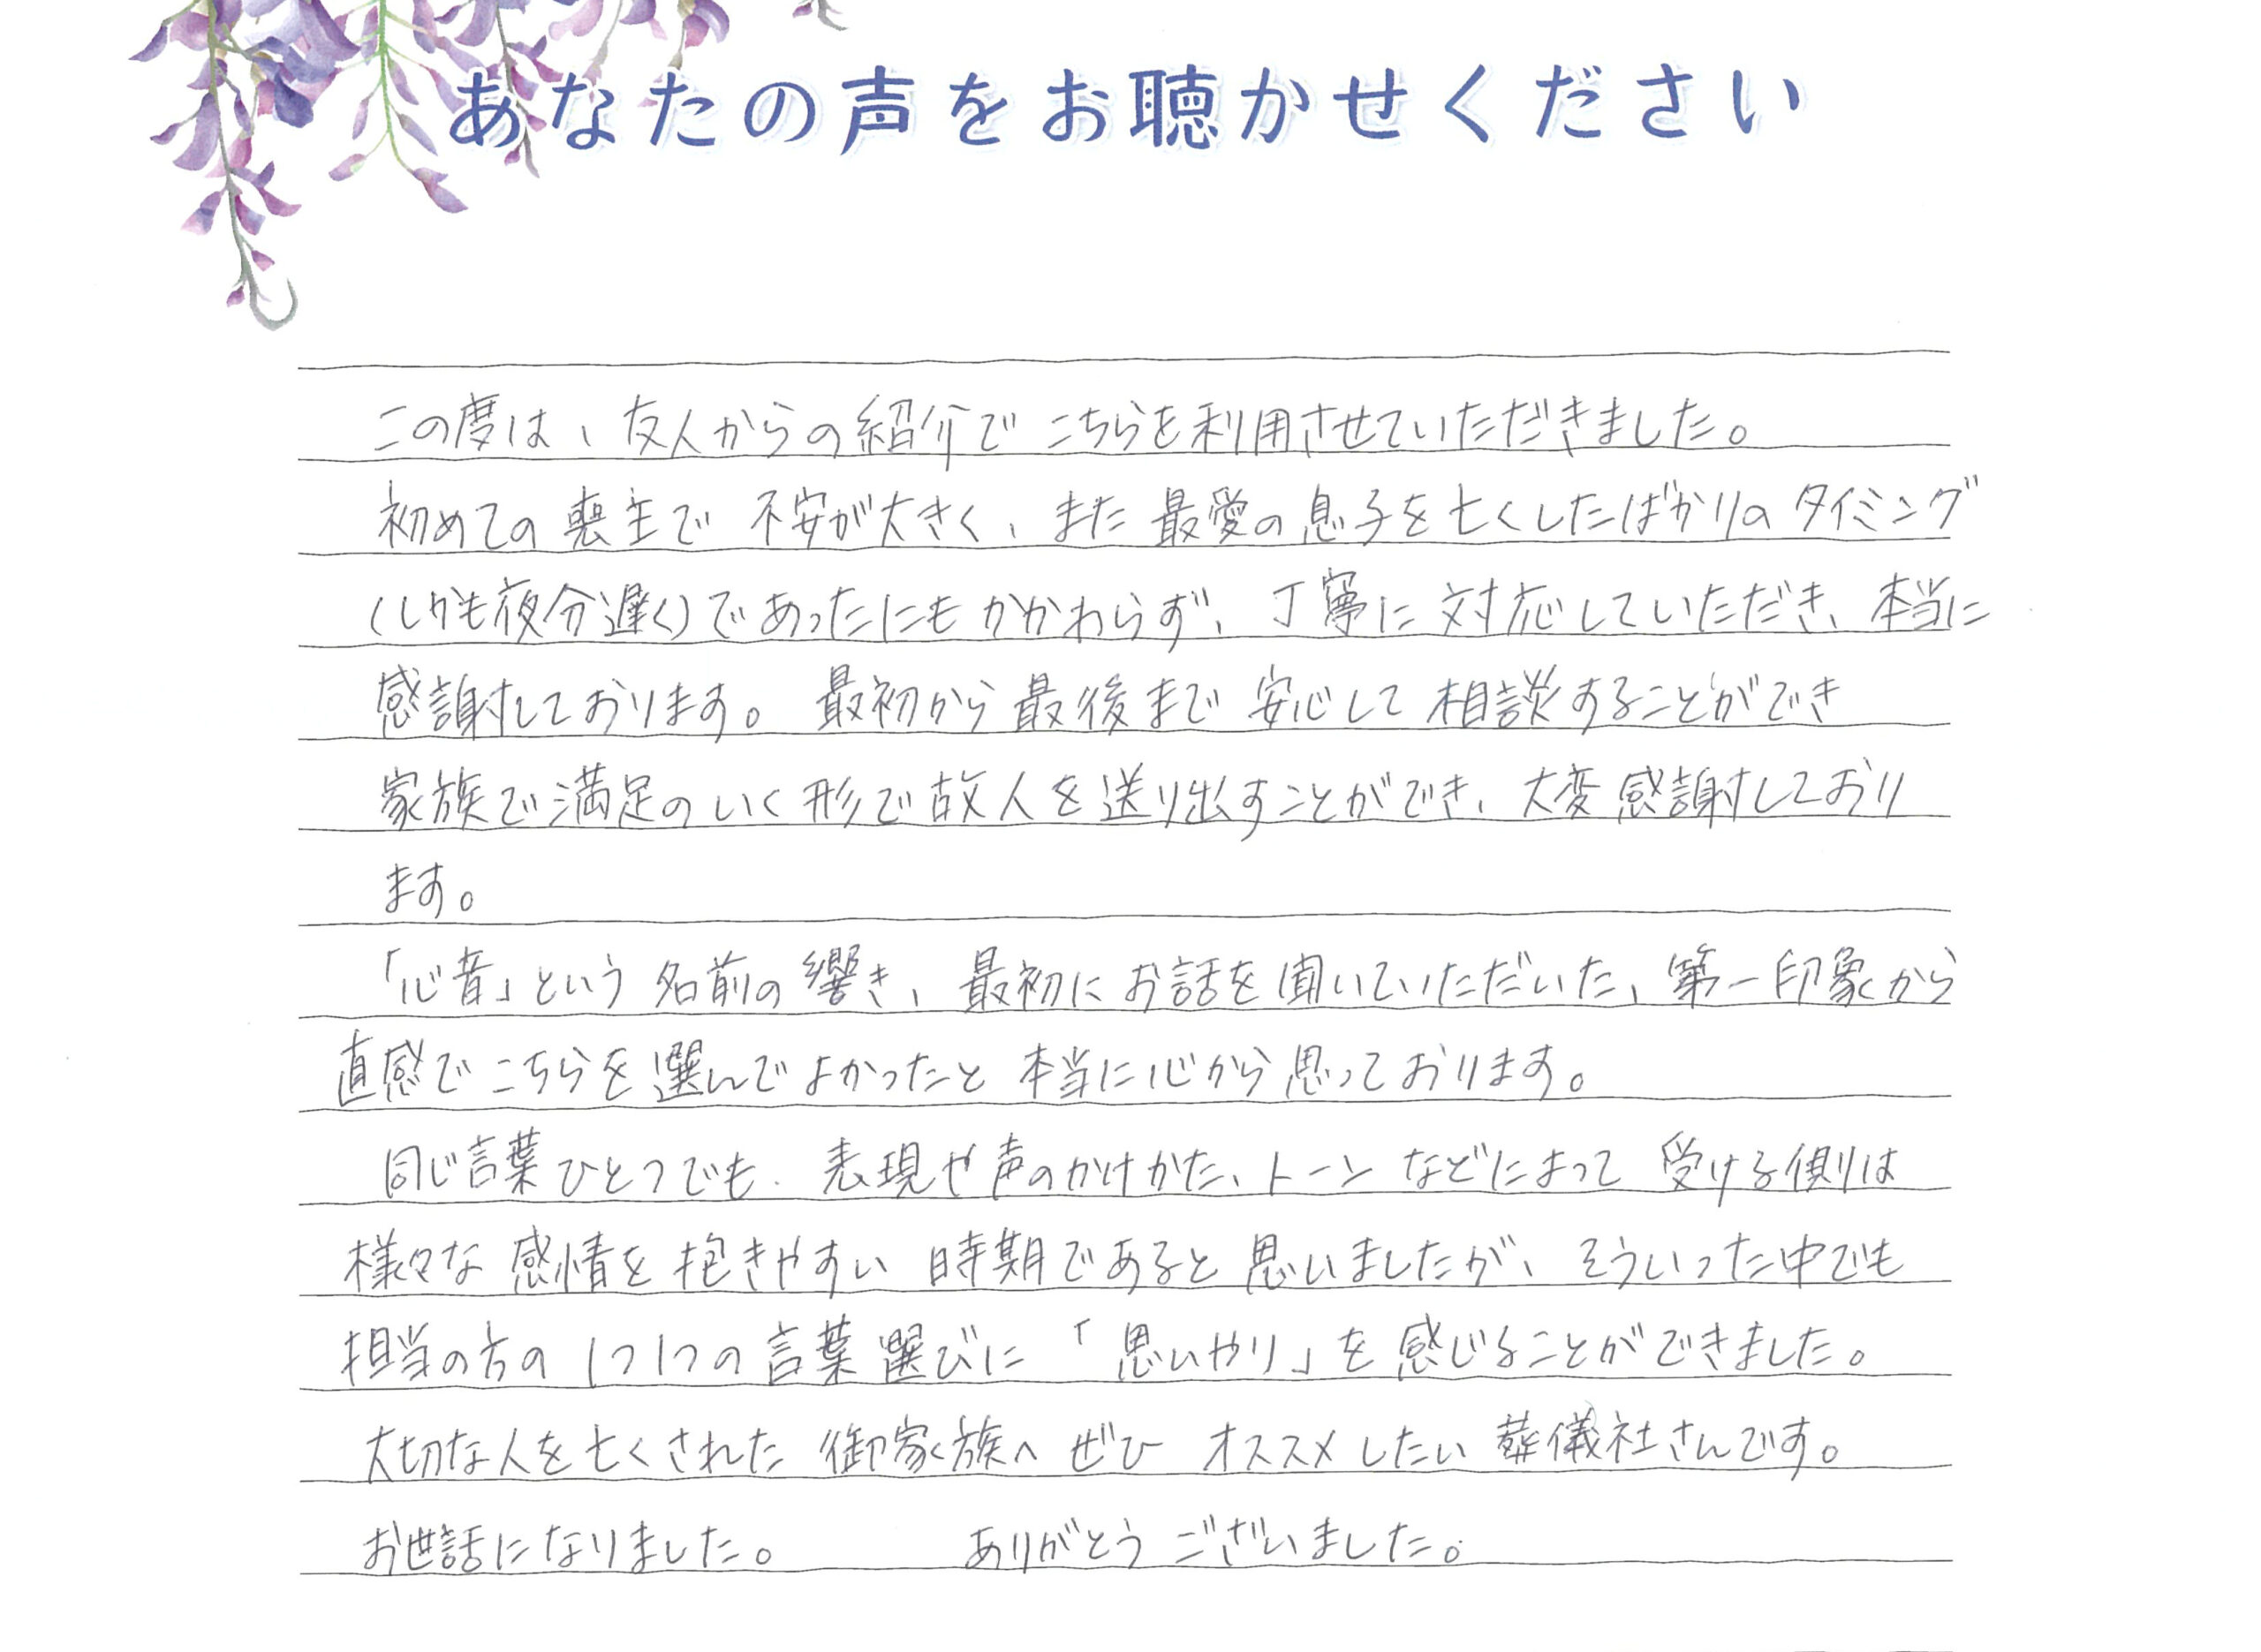 あなたの声をお聴かせください
この度は、友人からの紹介でこちらを利用させていただきました。
初めての喪主で不安が大きく、また最愛の息子を亡くしたばかりのタイミング
(しかも夜分遅く)であったにもかかわらず、丁寧に対応していただき、本当に
感謝しております。最初から最後まで安心して相談することができ
家族で満足のいく形で故人を送り出すことができ、大変感謝しており
ます。
「心音」という名前の響き、最初にお話を聞いていただいた、第一印象から
直感でこちらを選んでよかったと本当に心から思っております。
同じ言葉ひとつでも、表現や声のかけかた、トーンなどによって受ける側は
様々な感情を抱きやすい時期であると思いましたが、そういった中でも
担当の方の1つ1つの言葉選びに「思いやり」を感じることができました。
大切な人を亡くされた御家族へぜひオススメしたい葬儀社さんです。
お世話になりました。 ありがとうございました。